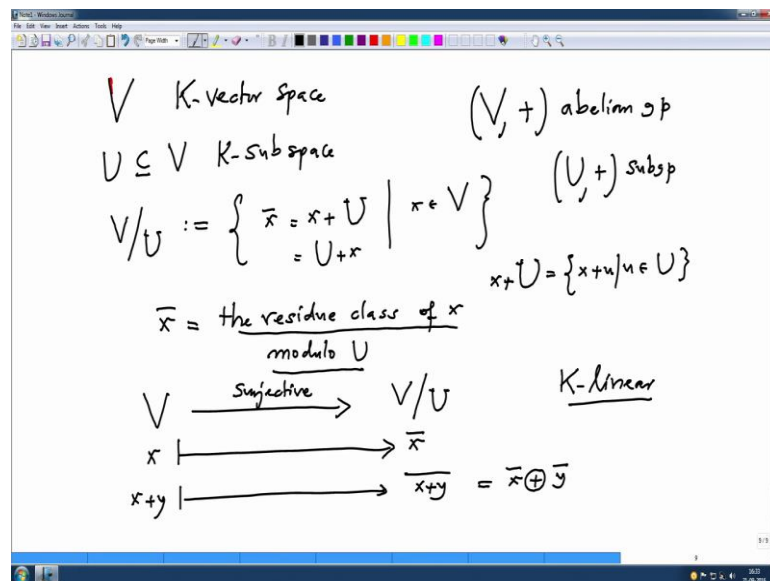 Note1 - Windows Journal
File Edit View Insert Actions Tools Help
Page Width
V K-vector space
(V, +) abelian gp
U ⊆ V K-subspace
(U, +) subgp
V/U := { x̄ = x + U | x ∈ V }
= U + x
x + U = {x + u | u ∈ U}
x̄ = the residue class of x
modulo U
V surjective → V/U
K-linear
x ↦ x̄
x+y ↦ \overline{x+y} = x̄ ⊕ ȳ
5/5
9
16:33